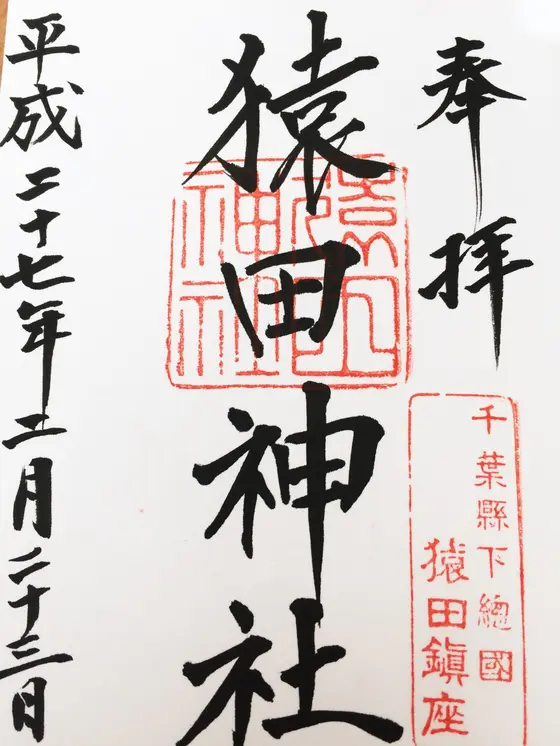 奉拝
千葉縣下總國
猿田鎭座
猿田神社
平成二十七年二月二十三日